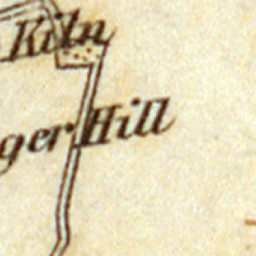 Kiln
ger Hill